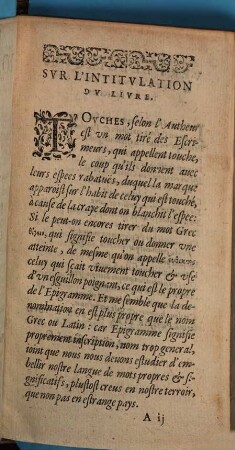 SVR L'INTITVLATION
DV LIVRE.
TOVCHES, selon l'Autheur
est vn mot tiré des Escri-
meurs, qui appellent touche,
le coup qu'ils donnent auec
leurs espees rabatues, duquel la marque
apparoist sur l'habit de celuy qui est touché,
à cause de la craye dont on blanchit l'espee:
Si le peut-on encores tirer du mot Grec
qui signifie toucher ou donner vne
atteinte, de mesme qu'on appelle
celuy qui sçait viuement toucher & vse
d'vn esguillon poignant, ce qui est le propre
de l'Epigramme. Et me semble que la de-
nomination en est plus propre que le nom
Grec ou Latin: car Epigramme signifie
proprement inscription, nom trop general,
ioint que nous nous deuons estudier d'em-
bellir nostre langue de mots propres & si-
gnificatifs, plustost creus en nostre terroir,
que non pas en estrange pays.
A ij